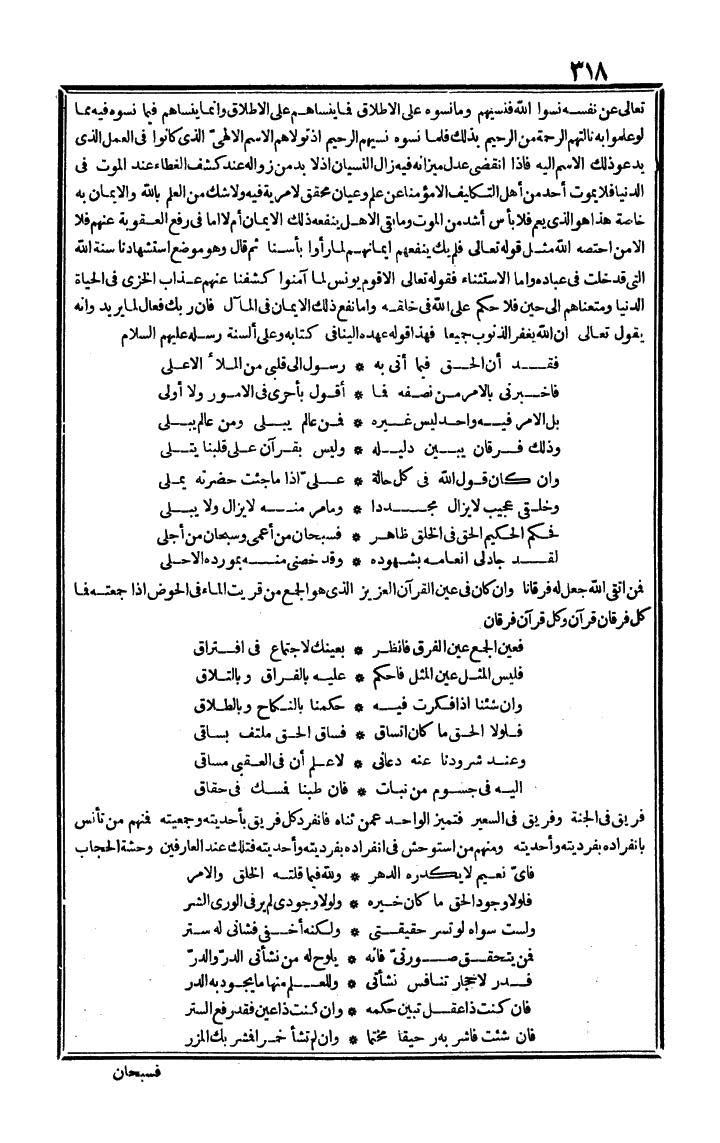 ٣١٨
تعالى عن نفسه نسوا الله فنسيهم وما نسوه على الاطلاق فما ينساهم على الاطلاق وانما ينساهم فيما نسوه فيه مما
لو علموا به نالتهم الرحمة من الرحيم بذلك فلما نسوه نسيهم الرحيم اذ تولاهم الاسم الالهىّ الذى كانوا فى العمل الذى
يدعو ذلك الاسم اليه فاذا انقضى عدل ميزانه فيه زال النسيان اذ لابد من زواله عند كشف الغطاء عند الموت فى
الدنيا فلا يموت أحد من أهل التكليف الا مؤمنا عن علم وعيان محقق لا مرية فيه ولا شك من العلم بالله والايمان به
خاصة هذا هو الذى يعم فلا بأس أشد من الموت وما بقى الا هل ينفعه ذلك الايمان أم لا اما فى رفع العقوبة عنهم فلا
الا من اختصه الله مثل قوله تعالى فلم يك ينفعهم ايمانهم لما رأوا بأسنا ثم قال وهو موضع استشهادنا سنة الله
التى قد خلت فى عباده واما الاستثناء فقوله تعالى الا قوم يونس لما آمنوا كشفنا عنهم عذاب الخزى فى الحياة
الدنيا ومتعناهم الى حين فلا حكم على الله فى خلقه واما نفع ذلك الايمان فى المآل فان ربك فعال لما يريد وانه
يقول تعالى ان الله يغفر الذنوب جميعا فهذا قوله عهده الينا فى كتابه وعلى ألسنة رسله عليهم السلام
فقد أن الحق فيما أتى به * رسول الى قلبى من الملأ الاعلى
فاخبرنى بالامر من نصفه فما * أقول بأحرى فى الامور ولا أولى
بل الامر فيه واحد ليس غيره * فمن عالم يبلى ومن عالم يبلى
وذلك فرقان يبين دليله * وليس بقرآن على قلبنا يتلى
وان كان قول الله فى كل حالة * علىّ اذا ما جئت حضرته يملى
وخلقى عجيب لا يزال مجددا * وما مر منه لا يزال ولا يبلى
فحكم الحكيم الحق فى الخلق ظاهر * فسبحان من أعمى وسبحان من أجلى
لقد جاد لى انعامه بشهوده * وقد خصنى منه بمورده الاحلى
فمن اتقى الله جعل له فرقانا وان كان فى عين القرآن العزيز الذى هو الجمع من قريت الماء فى الحوض اذا جمعته فما
كل فرقان قرآن وكل قرآن فرقان
فعين الجمع عين الفرق فانظر * بعينك لاجتماع فى افتراق
فليس المثل عين المثل فاحكم * عليه بالفراق وبالتلاق
وان شئنا اذا فكرت فيه * حكمنا بالنكاح وبالطلاق
فلولا الحق ما كان اتساق * فساق الحق ملتف بساقى
وعند شرودنا عنه دعانى * لاعلم أن فى العقبى مساقى
اليه فى جسوم من نبات * فان طبنا فسك فى حقاق
فريق فى الجنة وفريق فى السعير فتميز الواحد عمن ثناه فانفرد كل فريق بأحديته وجمعيته فمنهم من تأنس
بانفراده بفرديته وأحديته ومنهم من استوحش فى انفراده بفرديته وأحديته فتلك عند العارفين وحشة الحجاب
فاىّ نعيم لا يكدره الدهر * ولله فيما قلته الخلق والامر
فلولا وجود الحق ما كان خيره * ولولا وجودى لم ير فى الورى الشر
ولست سواه لو تسر حقيقتى * ولكنه أخفى فشانى له ستر
فمن يتحقق صورتىّ فانه * يلوح له من نشأتى الدرّ والدرّ
فدر لاحجار تنافس نشأتى * وللعلم منها ما يجود به الدر
فان كنت ذا عقل تبين حكمه * وان كنت ذا عين فقد رفع الستر
فان شئت فاشر به رحيقا مختما * وان لم تشأ خمرا فشر بك المزر
فسبحان